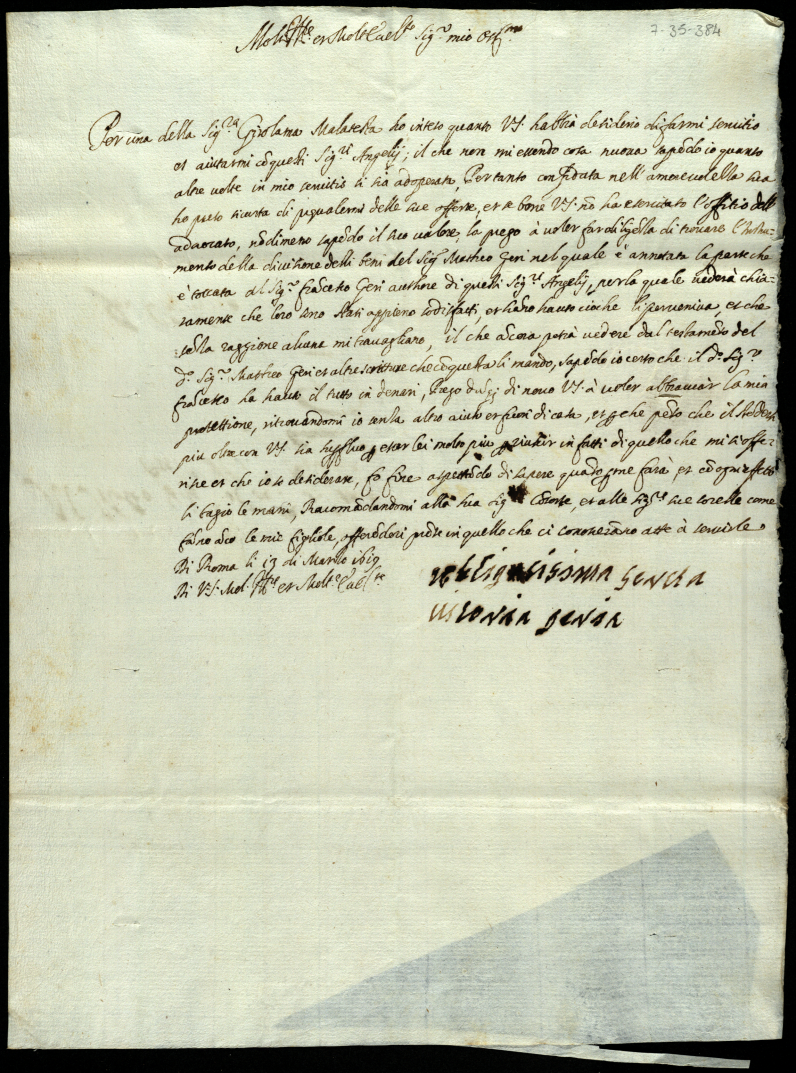 7-35-384
Mol. Ill.re et Molt Ecc.te Sig.r mio Oss.mo
Per una della Sig.ra Girolama Malatesta ho inteso quanto V.S. habbia desiderio di farmi servitio
et aiutarmi cō questi Sig.ri Angelij; il che non mi essendo cosa nuova sapēdo io quanto
altre volte in mio servitio si sia adoperata, Pertanto confidata nell'amorevolezza sua
ho preso sicurtà di prevalermi delle sue offerte, et se bene V.S. nō ha esercitato l'offitio dell'
advocato, nōdimeno sapēdo il suo valore, la prego à voler far diligēza di trovare l'Instru=
mento della divisione delli beni del Sig.r Mattheo Geri nel quale è annotata la parte che
è toccata al Sig.r Frācesco Geri authore di questi Sig.ri Angelij, per la quale vederà chia=
ramente che loro sono stati appieno sodisfatti, et hāno hauto ciò che li perveniva, et che
sēza raggione alcuna mi travagliano, il che ācora potrà vedere dal testamēto del
d.o Sig.r Mattheo Geri et altre scritture che cō questa li mando, sapēdo io certo che il d.o Sig.r
Frācesco ha hauto il tutto in denari, Prego di novo V.S. à voler abbracciar la mia
protettione, ritrovandomi io senza altro aiuto et fuori di casa, et perche pēso che il stēdermi
più oltre con V.S. sia supfluo p esser lei molto più p riuscir in fatti di quello che mi si offe=
risce et che io so desiderare, fo fine aspettādo di sapere quādo p me farà, et cō ogni affetto
li bagio le mani, Racomādandomi alla sua Sig.ra Cōsorte, et alle Sig.re sue sorelle come
fāno āco le mie figliole, offerēdoci prōte in quello che ci conosceranno atte à servirle.
Di Roma li 13 di Marzo 1619
Di V.S. Mol. Ill.re et Molt.o Ecc.te
obligatissima
vitoria